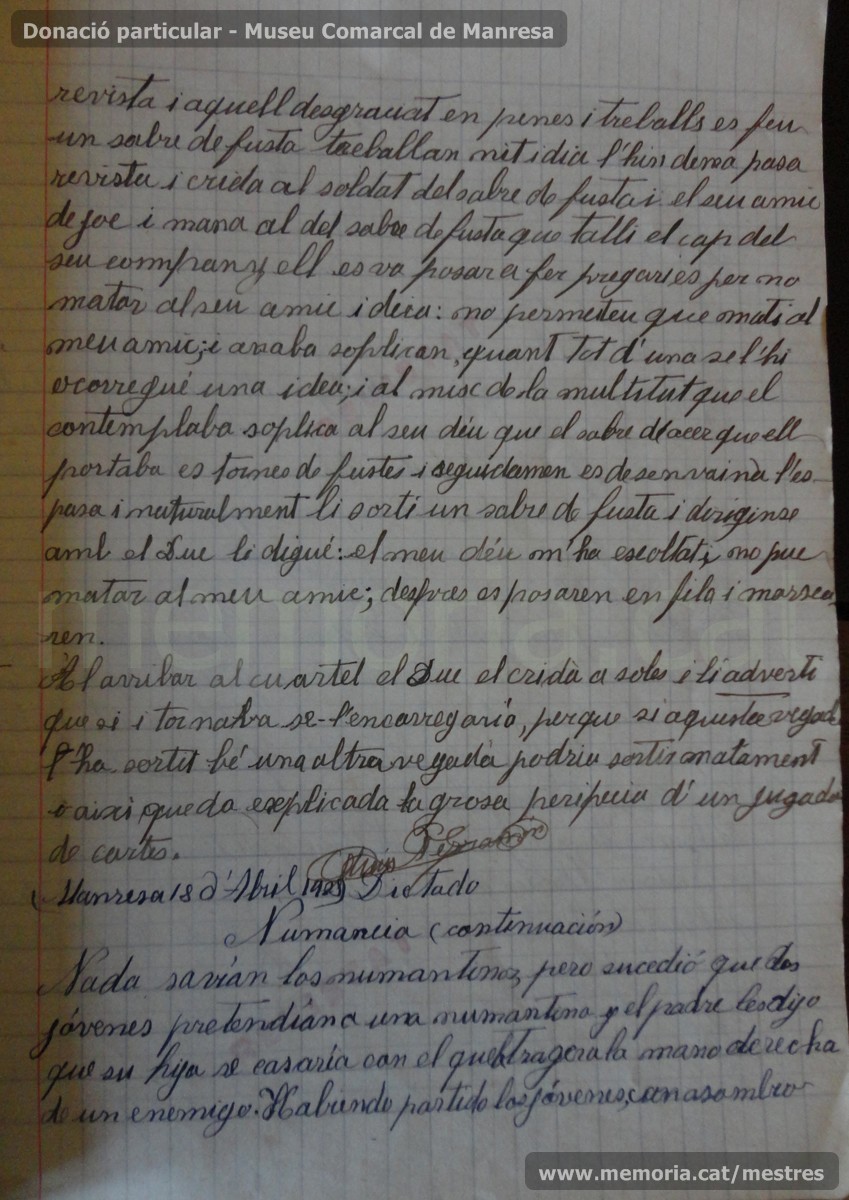 Donació particular - Museu Comarcal de Manresa
revista i aquell desgraciat en penes i treballs es feu
un sabre de fusta traeballan nit i dia l'hin dema pasa
revista i crida al soldat del sabre de fusta i el seu amic
de joc i mana al del sabre de fusta que talli el cap del
seu company, ell es va posar a fer pregaries per no
matar al seu amic i deia: no permeteu que mati al
meu amic; i anaba soplican, quant tot d'una se l'hi
ocorregué una idea; i al misc de la multitut que el
contemplaba soplica al seu déu que el sabre d'acer que ell
portaba es tornes de fustes i seguidamen es desenvainà l'es
pasa i naturalment li sortí un sabre de fusta i diriginse
amb el Duc li digué: el meu déu m'ha escoltat, no puc
matar al meu amic; despres es posaren en fila i marxa
ren.
Al arribar al cuartel el Duc el cridà a soles i li adverti
que si i tornava se-l'encarregaria, perque si aquesta vegada
l'ha sortit bé una altra vegadà podria sortir matament
i aixi queda explicada la grosa peripecia d'un jugado
de cartes.
Manresa 18 d'Abril 1929 Dictado
Numancia (continuación)
Nada savían los numantinos, pero sucedió que dos
jóvenes pretendían a una numantina y el padre les dijo
que su hija se casaría con el que tragera la mano derecha
de un enemigo. Habiendo partido los jóvenes, con asombro
www.memoria.cat/mestres